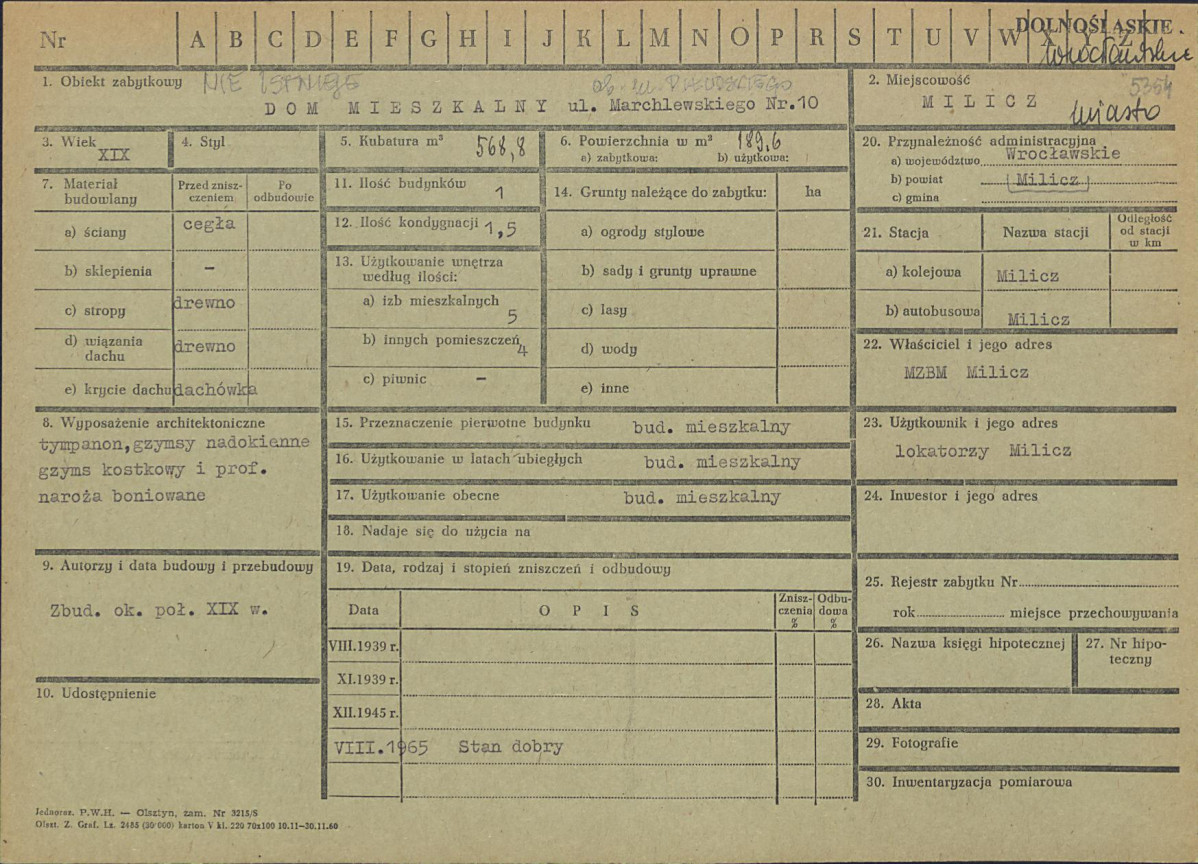 Nr A B C D E F G H I J K L M N O P R S T U V W X Y Z
DOLNOŚLĄSKIE
wrocławskie
1. Obiekt zabytkowy NIE ISTNIEJE
DOM MIESZKALNY ul. Marchlewskiego Nr.10
2. Miejscowość 5354
MILICZ
miasto
3. Wiek
XIX
4. Styl
5. Kubatura m³ 568,8
6. Powierzchnia w m² 189,6
a) zabytkowa: b) użytkowa:
7. Materiał budowlany
Przed zniszczeniem
Po odbudowie
a) ściany cegła
b) sklepienia –
c) stropy drewno
d) wiązania dachu drewno
e) krycie dachu dachówka
8. Wyposażenie architektoniczne
tympanon,gzymsy nadokienne
gzyms kostkowy i prof.
naroża boniowane
9. Autorzy i data budowy i przebudowy
Zbud. ok. poł. XIX w.
10. Udostępnienie
11. Ilość budynków 1
12. Ilość kondygnacji 1,5
13. Użytkowanie wnętrza
według ilości:
a) izb mieszkalnych 5
b) innych pomieszczeń 4
c) piwnic –
14. Grunty należące do zabytku: ha
a) ogrody stylowe
b) sady i grunty uprawne
c) lasy
d) wody
e) inne
15. Przeznaczenie pierwotne budynku bud. mieszkalny
16. Użytkowanie w latach ubiegłych bud. mieszkalny
17. Użytkowanie obecne bud. mieszkalny
18. Nadaje się do użycia na
19. Data, rodzaj i stopień zniszczeń i odbudowy
Data OPIS Zniszczenia % Odbudowa %
VIII.1939 r.
XI.1939 r.
XII.1945 r.
VIII.1965 Stan dobry
20. Przynależność administracyjna
a) województwo Wrocławskie
b) powiat Milicz
c) gmina
21. Stacja Nazwa stacji Odległość od stacji w km
a) kolejowa Milicz
b) autobusowa Milicz
22. Właściciel i jego adres
MZBM Milicz
23. Użytkownik i jego adres
lokatorzy Milicz
24. Inwestor i jego adres
25. Rejestr zabytku Nr
rok miejsce przechowywania
26. Nazwa księgi hipotecznej
27. Nr hipoteczny
28. Akta
29. Fotografie
30. Inwentaryzacja pomiarowa
Jednoraz. P.W.H. — Olsztyn, zam. Nr 3215/S
Olszt. Z. Graf. Lz. 2485 (30 000) karton V kl. 220 70x100 10.11—30.11.60